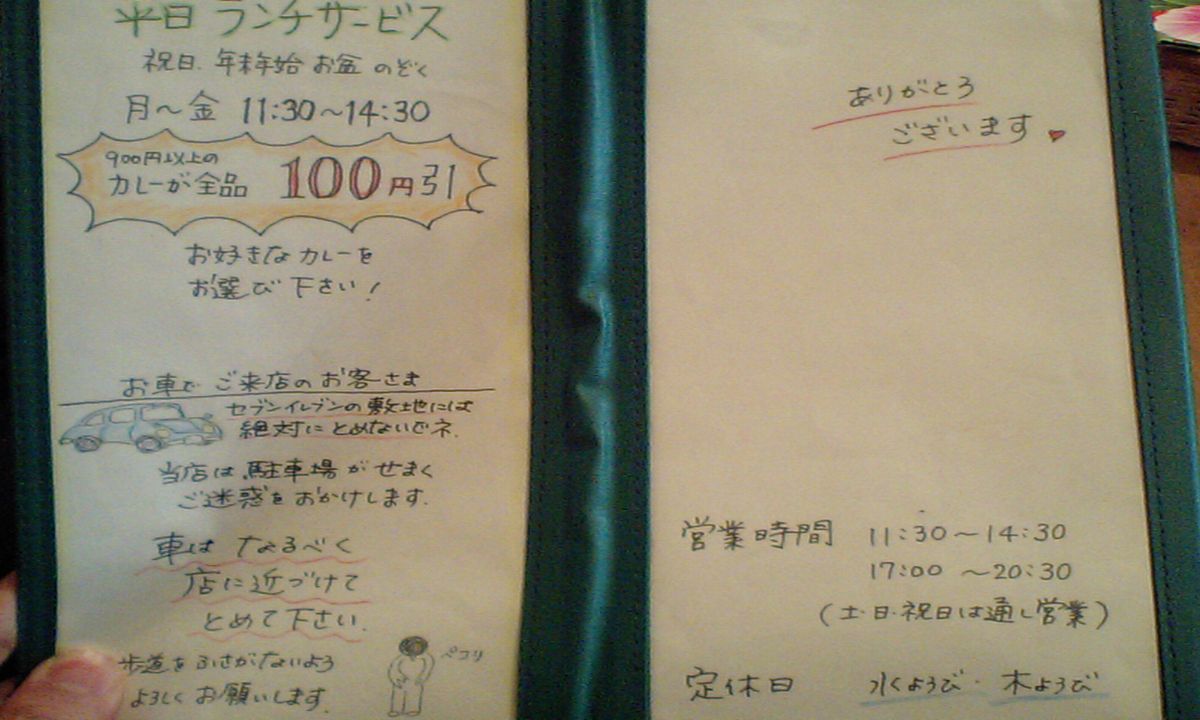 平日 ランチサービス
祝日、年末年始 お盆 のぞく
月～金 11:30～14:30
900円以上の
カレーが全品 100円引
お好きな カレーを
お選び 下さい!
お車で ご来店の お客さま
セブンイレブンの 敷地には
絶対に とめないでネ.
当店は 駐車場が せまく
ご迷惑を おかけします.
車は なるべく
店に 近づけて
とめて 下さい.
歩道を ふさがないよう
よろしく お願いします.
ペコリ
ありがとう
ございます
営業時間 11:30～14:30
17:00 ～20:30
(土・日・祝日は通し営業)
定休日 水ようび・木ようび